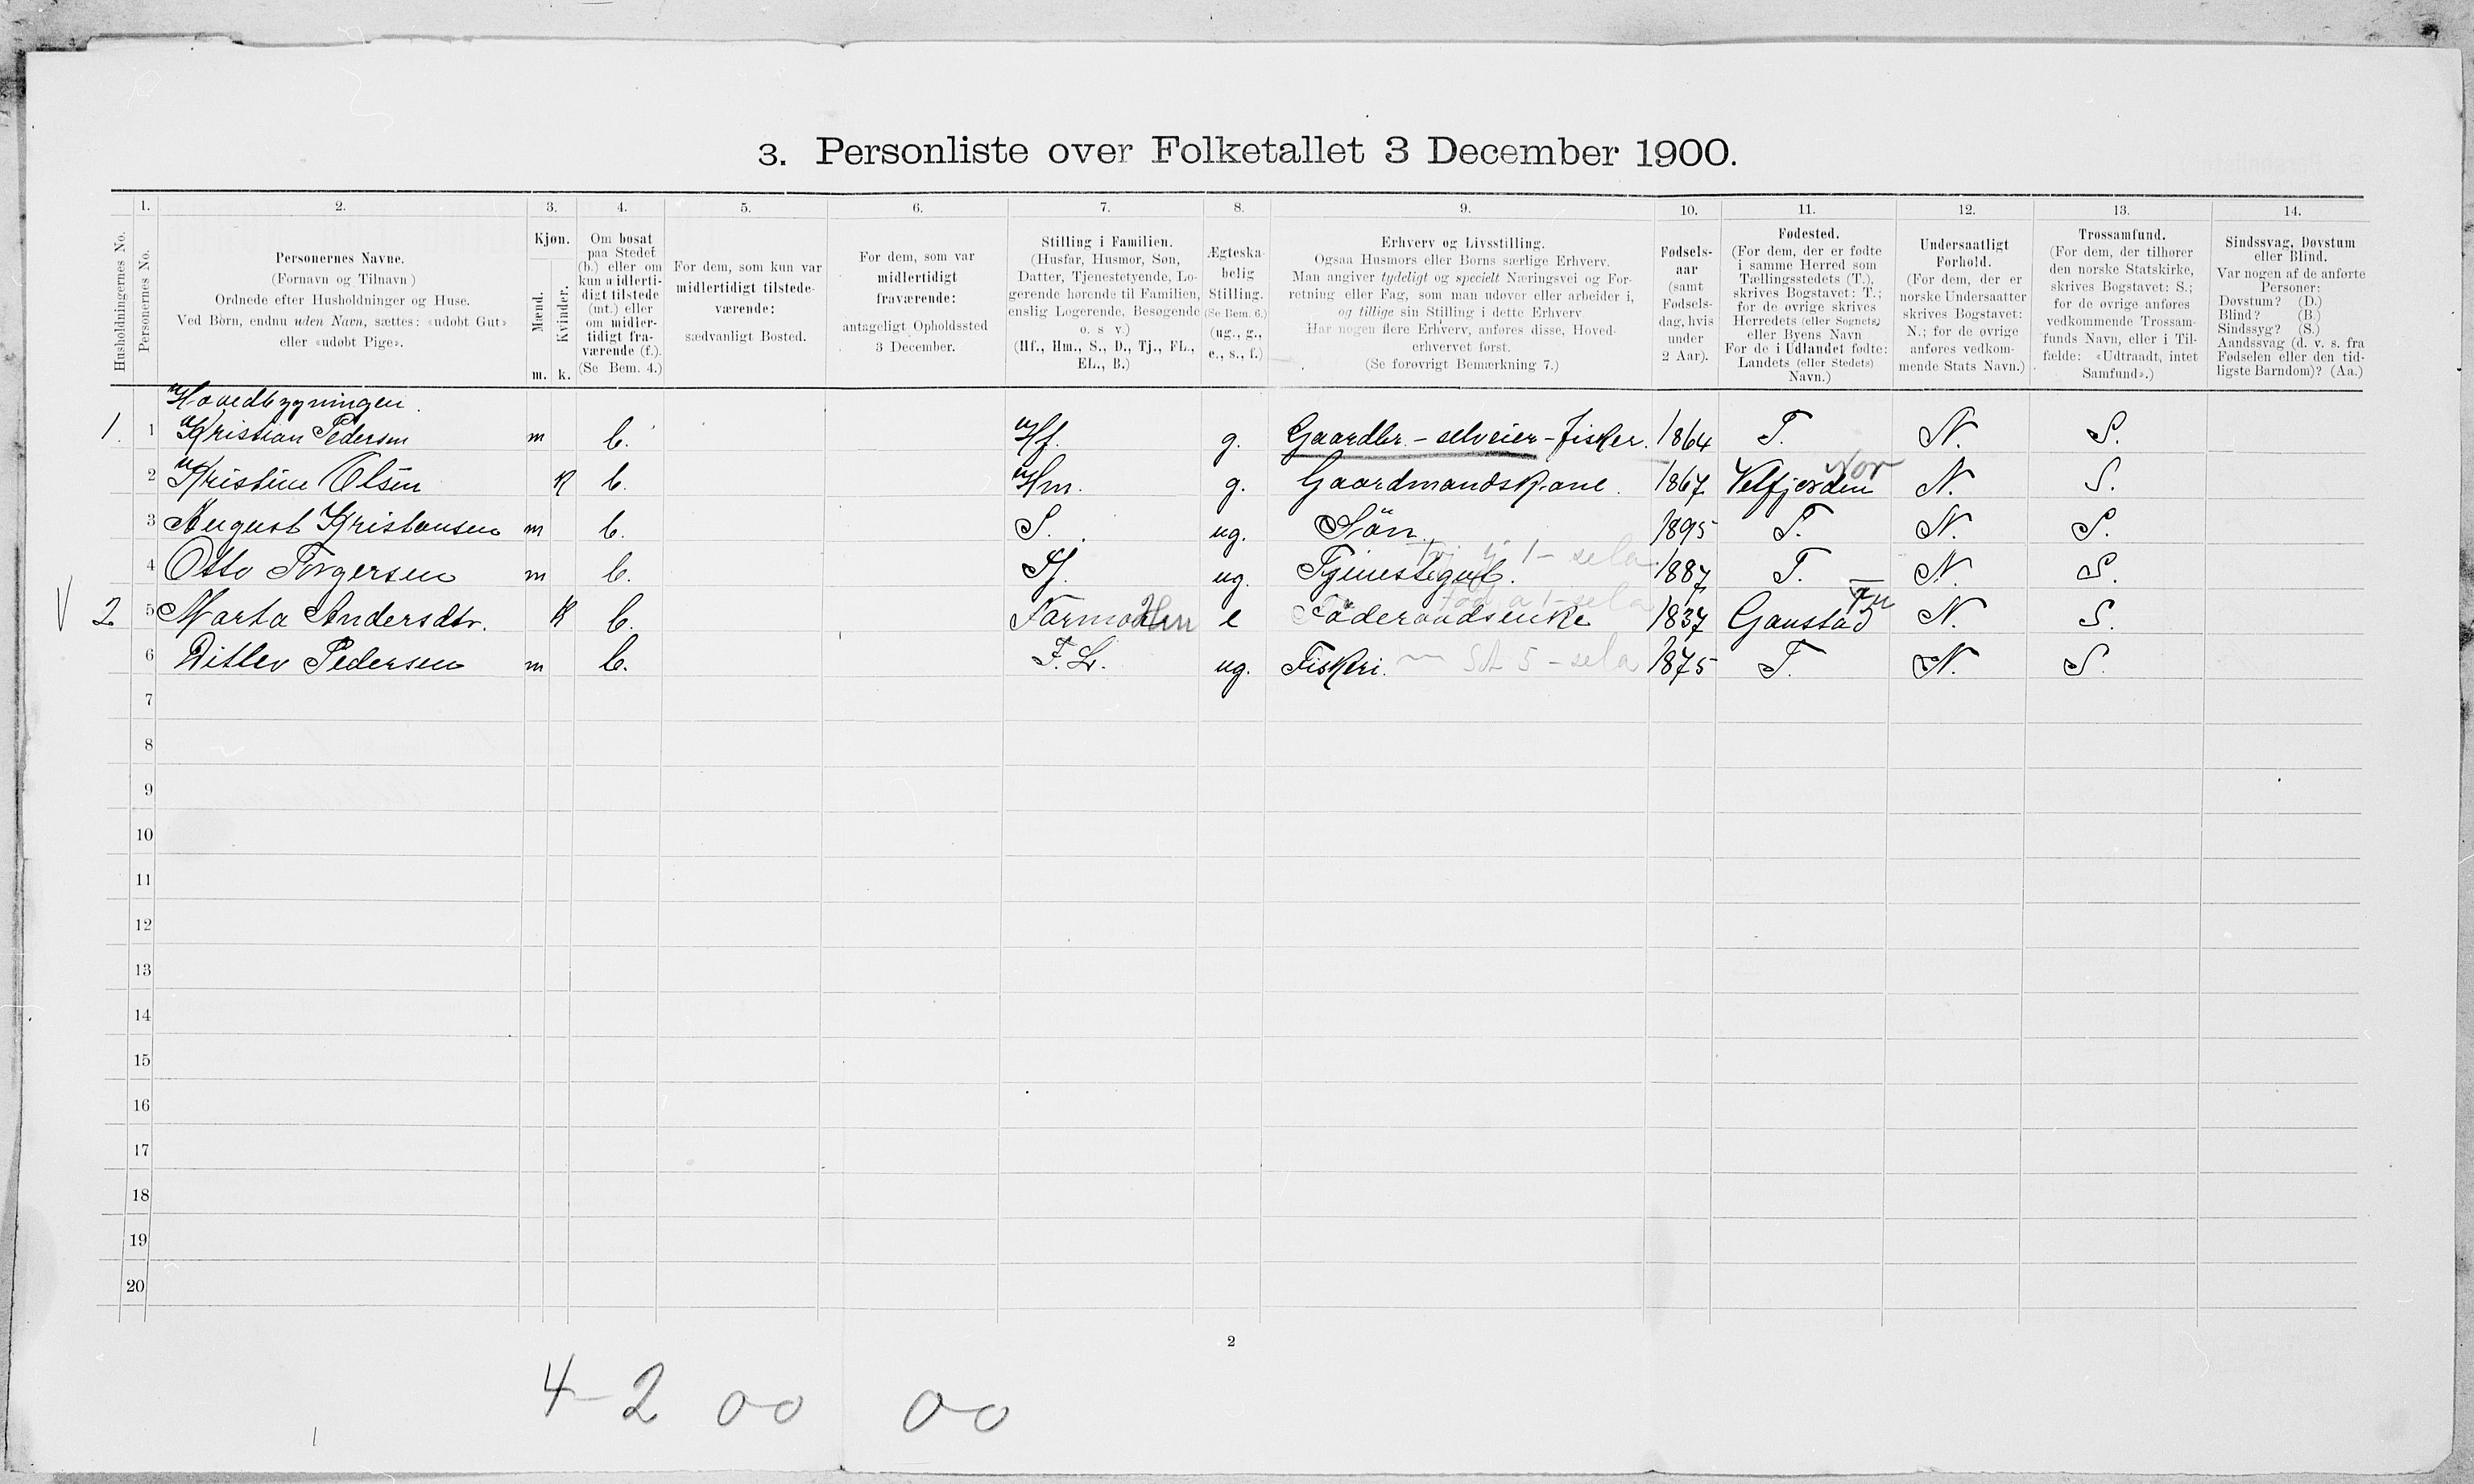 3. Personliste over Folketallet 3 December 1900.
1. 2. 3. 4. 5. 6. 7. 8. 9. 10. 11. 12. 13. 14.
Husholdningernes No.
Personernes No.
Personernes Navne.
(Fornavn og Tilnavn)
Ordnede efter Husholdninger og Huse.
Ved Børn, endnu uden Navn, sættes: «udøbt Gut»
eller «udøbt Pige».
Kjøn.
Mænd.
Kvinder.
m. k.
Om bosat
paa Stedet
(b.) eller om
kun midlerti-
digt tilstede
(mt.) eller
om midler-
tidigt fra-
værende (f.).
(Se Bem. 4.)
For dem, som kun var
midlertidigt tilstede-
værende:
sædvanligt Bosted.
For dem, som var
midlertidigt
fraværende:
antageligt Opholdssted
3 December.
Stilling i Familien.
(Husfar, Husmor, Søn,
Datter, Tjenestetyende, Lo-
gerende hørende til Familien,
enslig Logerende, Besøgende
o. s. v.)
(Hf., Hm., S., D., Tj., FL.,
EL., B.)
Ægteska-
belig
Stilling.
(Se Bem. 6.)
(ug., g.,
e., s., f.)
Erhverv og Livsstilling.
Ogsaa Husmors eller Børns særlige Erhverv.
Man angiver tydeligt og specielt Næringsvei og For-
retning eller Fag, som man udøver eller arbeider i,
og tillige sin Stilling i dette Erhverv.
Har nogen flere Erhverv, anføres disse, Hoved-
erhvervet først.
(Se forøvrigt Bemærkning 7.)
Fødsels-
aar
(samt
Fødsels-
dag, hvis
under
2 Aar).
Fødested.
(For dem, der er fødte
i samme Herred som
Tællingsstedets (T.),
skrives Bogstavet: T.;
for de øvrige skrives
Herredets (eller Sognets)
eller Byens Navn
For de i Udlandet fødte:
Landets (eller Stedets)
Navn.)
Undersaatligt
Forhold.
(For dem, der er
norske Undersaatter
skrives Bogstavet:
N.; for de øvrige
anføres vedkom-
mende Stats Navn.)
Trossamfund.
(For dem, der tilhører
den norske Statskirke,
skrives Bogstavet: S.;
for de øvrige anføres
vedkommende Trossam-
funds Navn, eller i Til-
fælde: «Udtraadt, intet
Samfund».)
Sindssvag, Døvstum
eller Blind.
Var nogen af de anførte
Personer:
Døvstum? (D.)
Blind? (B.)
Sindssyg? (S.)
Aandssvag (d. v. s. fra
Fødselen eller den tid-
ligste Barndom)? (Aa.)
Hovedbygningen.
1. 1 Kristian Pedersen m b. Hf. g. Gaardbr. - selveier - fisker. 1864 T. N. S.
2 Kristine Olsen k b. Hm. g. Gaardmandskone. 1867 Velfjorden Nor N. S.
3 August Kristansen m b. S. ug. Sön. 1895 T. N. S.
4 Otto Torgersen m b. Tj. ug. Tjenestegut. 1887 T. N. S.
2 5 Marta Andersdtr. k b. Hm e Föderaadsenke 1837 Ganstad N. S.
6 Ditlev Pedersen m b. F.L. ug. Fiskeri. 1875 T. N. S.
7
8
9
10
11
12
13
14
15
16
17
18
19
20
2
4 - 2 0-0 0-0